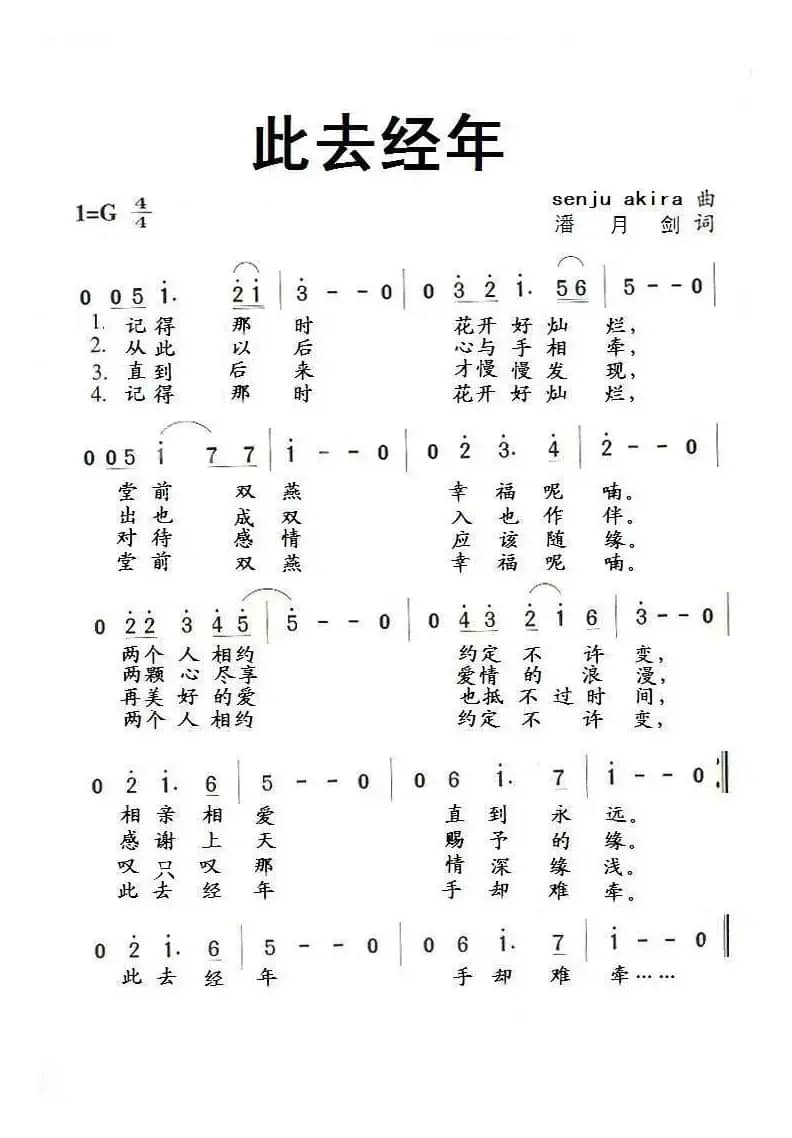 此去经年
1=G 4/4
senju akira 曲
潘 月 剑 词
0 05 1. 21 | 3 - - 0 | 0 3 2 1. 56 | 5 - - 0 |
1. 记得 那 时 花开 好 灿 烂,
2. 从此 以 后 心与 手 相 牵,
3. 直到 后 来 才慢 慢 发 现,
4. 记得 那 时 花开 好 灿 烂,
0 05 1 7 7 | 1 - - 0 | 0 2 3. 4 | 2 - - 0 |
堂 前 双 燕 幸 福 呢 喃。
出 也 成 双 入 也 作 伴。
对 待 感 情 应 该 随 缘。
堂 前 双 燕 幸 福 呢 喃。
0 22 3 45 | 5 - - 0 | 0 43 2 1 6 | 3 - - 0 |
两个 人 相约 约定 不 许 变,
两颗 心 尽享 爱情 的 浪 漫,
再美 好 的爱 也抵 不 过时 间,
两个 人 相约 约定 不 许 变,
0 2 1. 6 | 5 - - 0 | 0 6 1. 7 | 1 - - 0 :||
相 亲 相 爱 直 到 永 远。
感 谢 上 天 赐 予 的 缘。
叹 只 叹 那 情 深 缘 浅。
此 去 经 年 手 却 难 牵。
0 2 1. 6 | 5 - - 0 | 0 6 1. 7 | 1 - - 0 ||
此 去 经 年 手 却 难 牵……